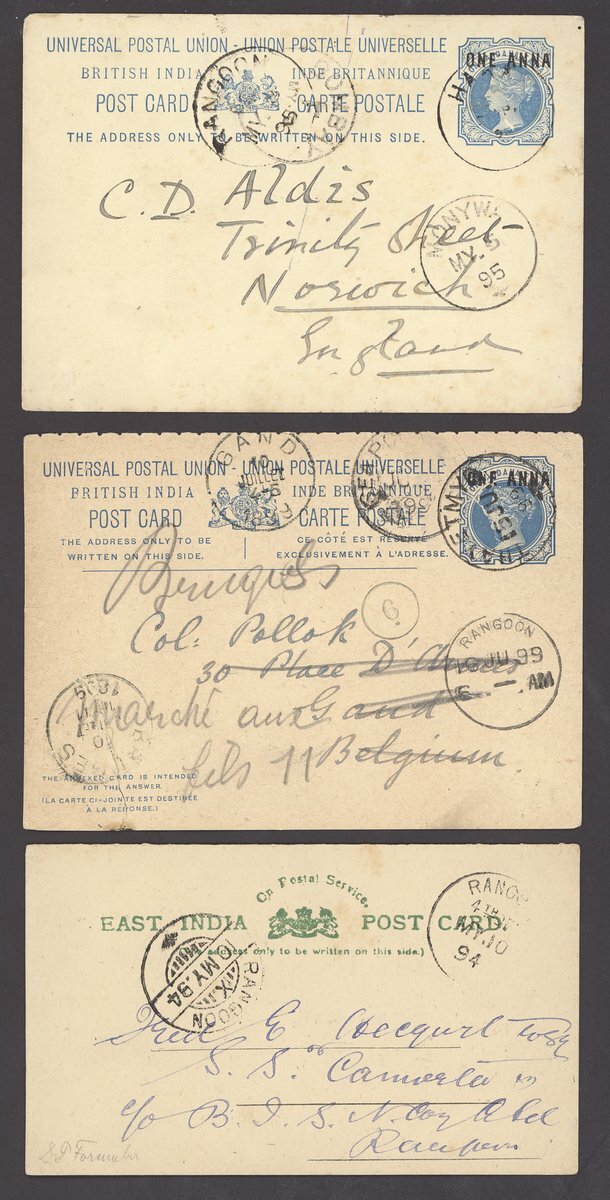 UNIVERSAL POSTAL UNION - UNION POSTALE UNIVERSELLE
ONE ANNA
BRITISH INDIA INDE BRITANNIQUE
POST CARD CARTE POSTALE
THE ADDRESS ONLY TO BE WRITTEN ON THIS SIDE.
RANGOON
MY
95
BOMBAY
C. D. Aldis
Trinity Street
Norwich
England
MONYWA
MY. 5
95
UNIVERSAL POSTAL UNION - UNION POSTALE UNIVERSELLE
ONE ANNA
BRITISH INDIA INDE BRITANNIQUE
POST CARD CARTE POSTALE
THE ADDRESS ONLY TO BE WRITTEN ON THIS SIDE.
CE CÔTÉ EST RÉSERVÉ EXCLUSIVEMENT À L'ADRESSE.
GAND
10
JUILLET
Col: Pollok
6
30 Place D'
marché aux Gand
fils 11 Belgium.
RANGOON
JU 99
AM
THE ANNEXED CARD IS INTENDED
FOR THE ANSWER.
(LA CARTE CI-JOINTE EST DESTINÉE
À LA RÉPONSE.)
On Postal Service.
EAST INDIA POST CARD.
(The address only to be written on this side.)
RANGOON
4TH
MY.10
94
RANGOON
MY.94
S. S.
c/o B. I. S. N. Coy
Rangoon